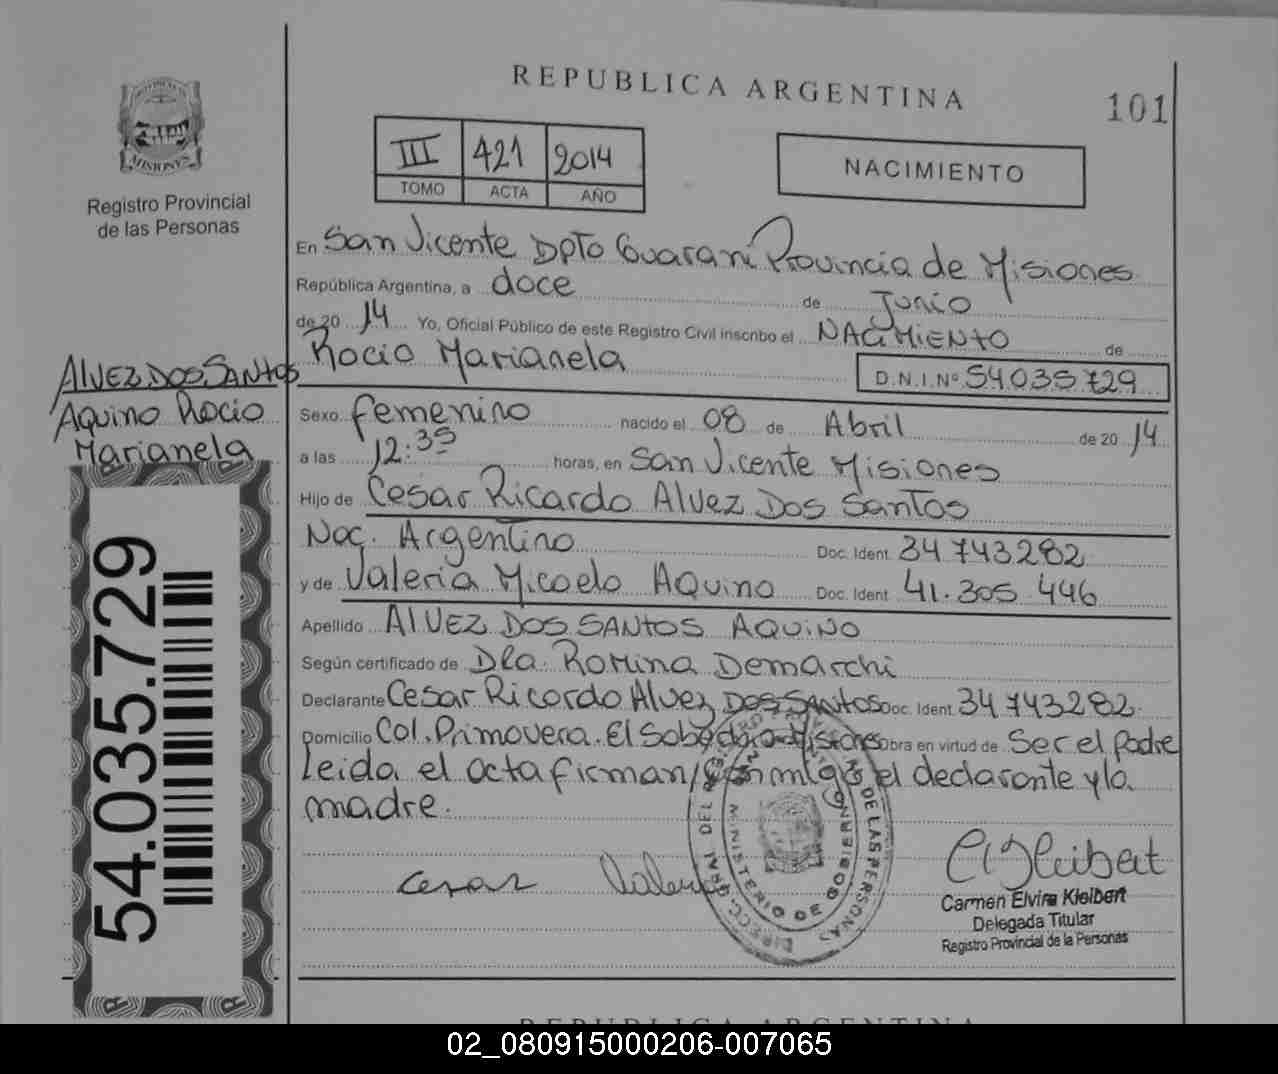 REPUBLICA ARGENTINA
101
III 421 2014
TOMO ACTA AÑO
NACIMIENTO
MISIONES
Registro Provincial
de las Personas
En San Vicente Dpto Guaraní Provincia de Misiones
República Argentina, a doce de Junio
de 20 14 Yo, Oficial Público de este Registro Civil inscribo el NACIMIENTO de
Rocio Marianela
D.N.I.Nº 54.035.729
ALVEZ DOS SANTOS
Aquino Rocio
Marianela
Sexo femenino nacido el 08 de Abril de 20 14
a las 12:35 horas, en San Vicente Misiones
Hijo de Cesar Ricardo Alvez Dos Santos
Nac. Argentino Doc. Ident. 34 743282
y de Valeria Micaela Aquino Doc. Ident 41.305.446
Apellido ALVEZ DOS SANTOS AQUINO
Según certificado de Dra. Romina Demarchi
Declarante Cesar Ricardo Alvez Dos Santos Doc. Ident. 34 743282
Domicilio Col. Primavera. El Soberbio Misiones obra en virtud de Ser el padre
leida el acta firman conmigo el declarante y la
madre.
54.035.729
Cesar
DIRECC. GRAL. DEL REGISTRO PROVINCIAL DE LAS PERSONAS
MINISTERIO DE GOBIERNO
Carmen Elvira Kleibert
Delegada Titular
Registro Provincial de la Personas
REPUBLICA ARGENTINA
02_080915000206-007065